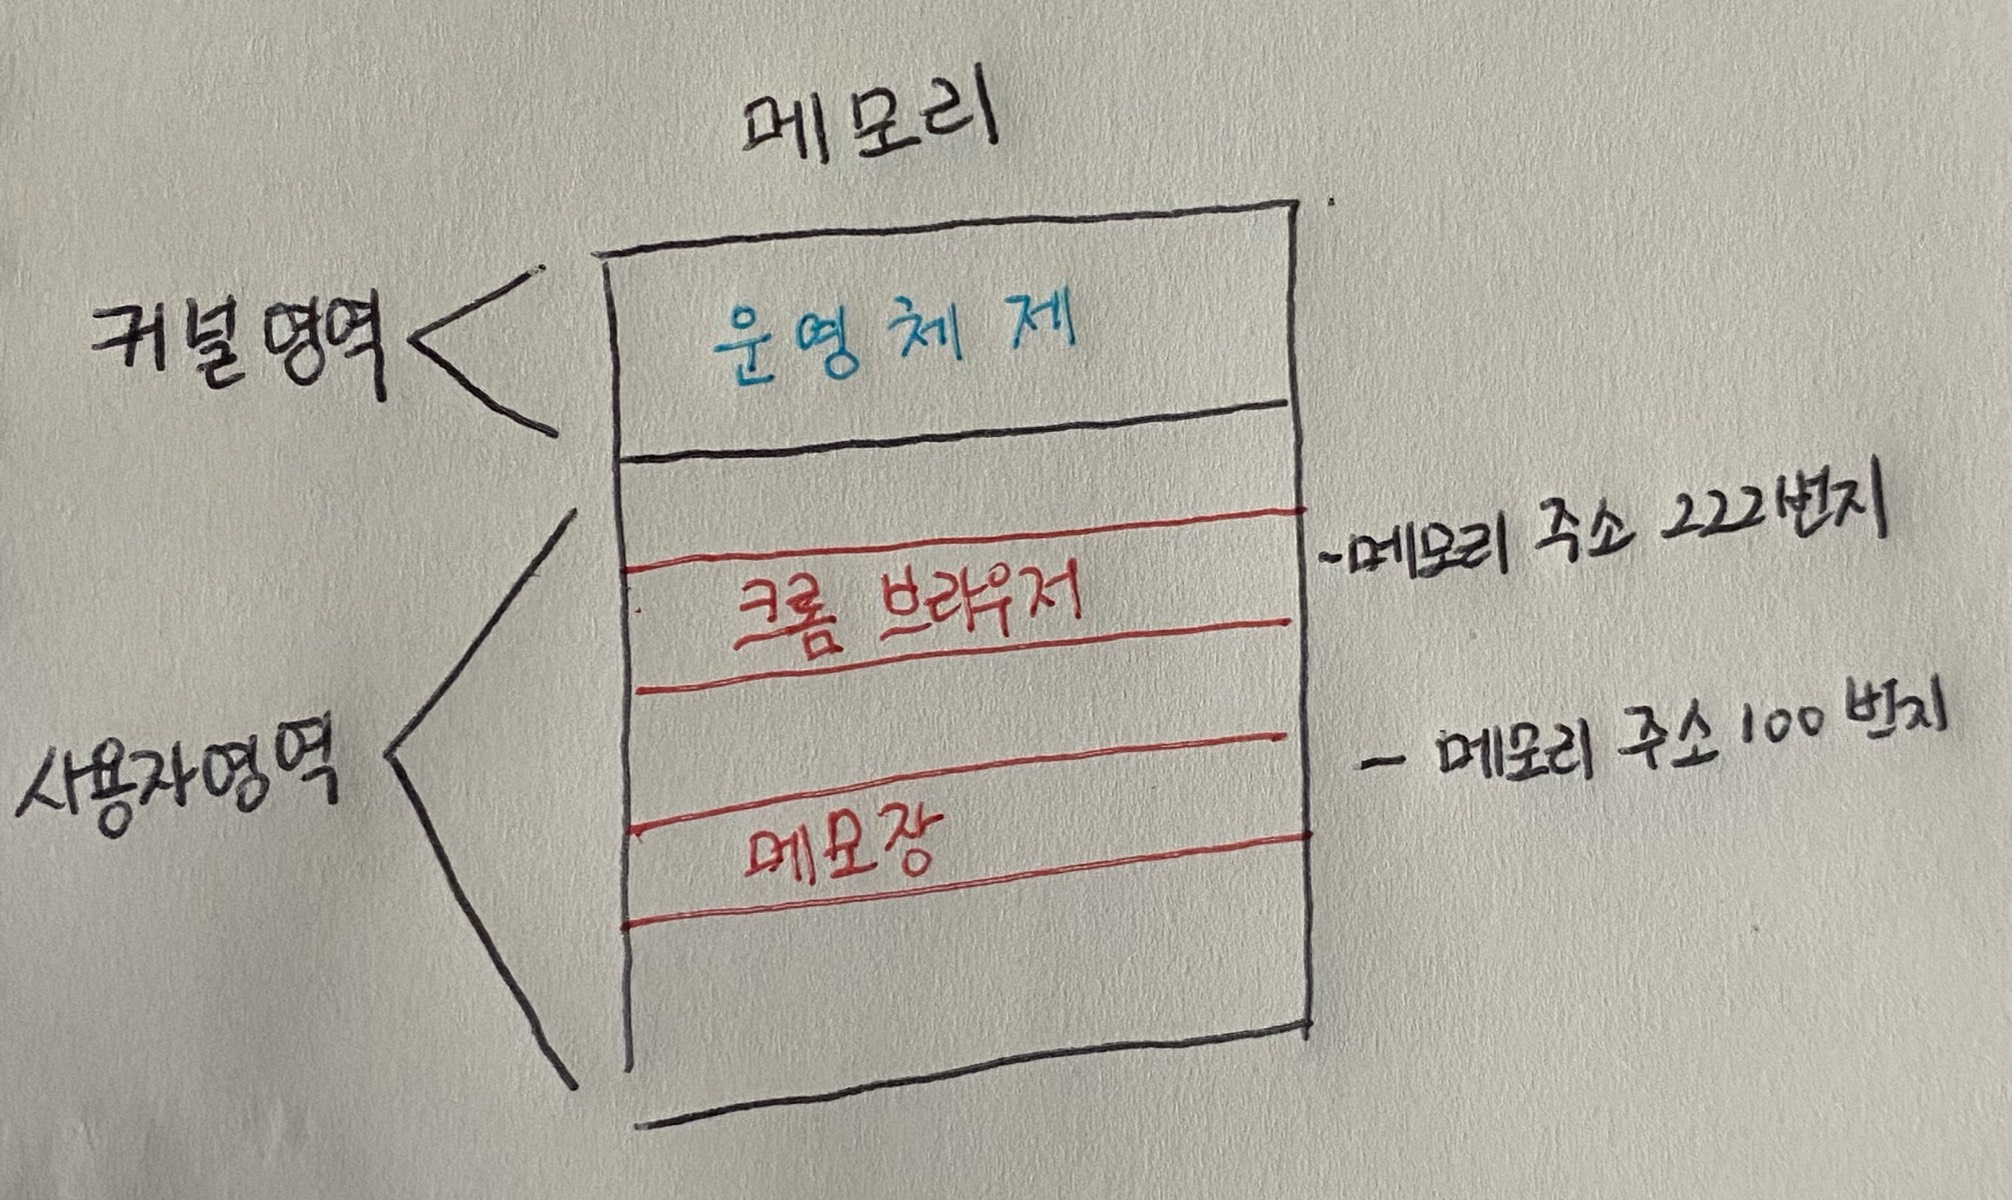 메모리
커널영역
운영체제
-메모리 주소 222번지
크롬 브라우저
- 메모리 주소 100번지
사용자영역
메모장